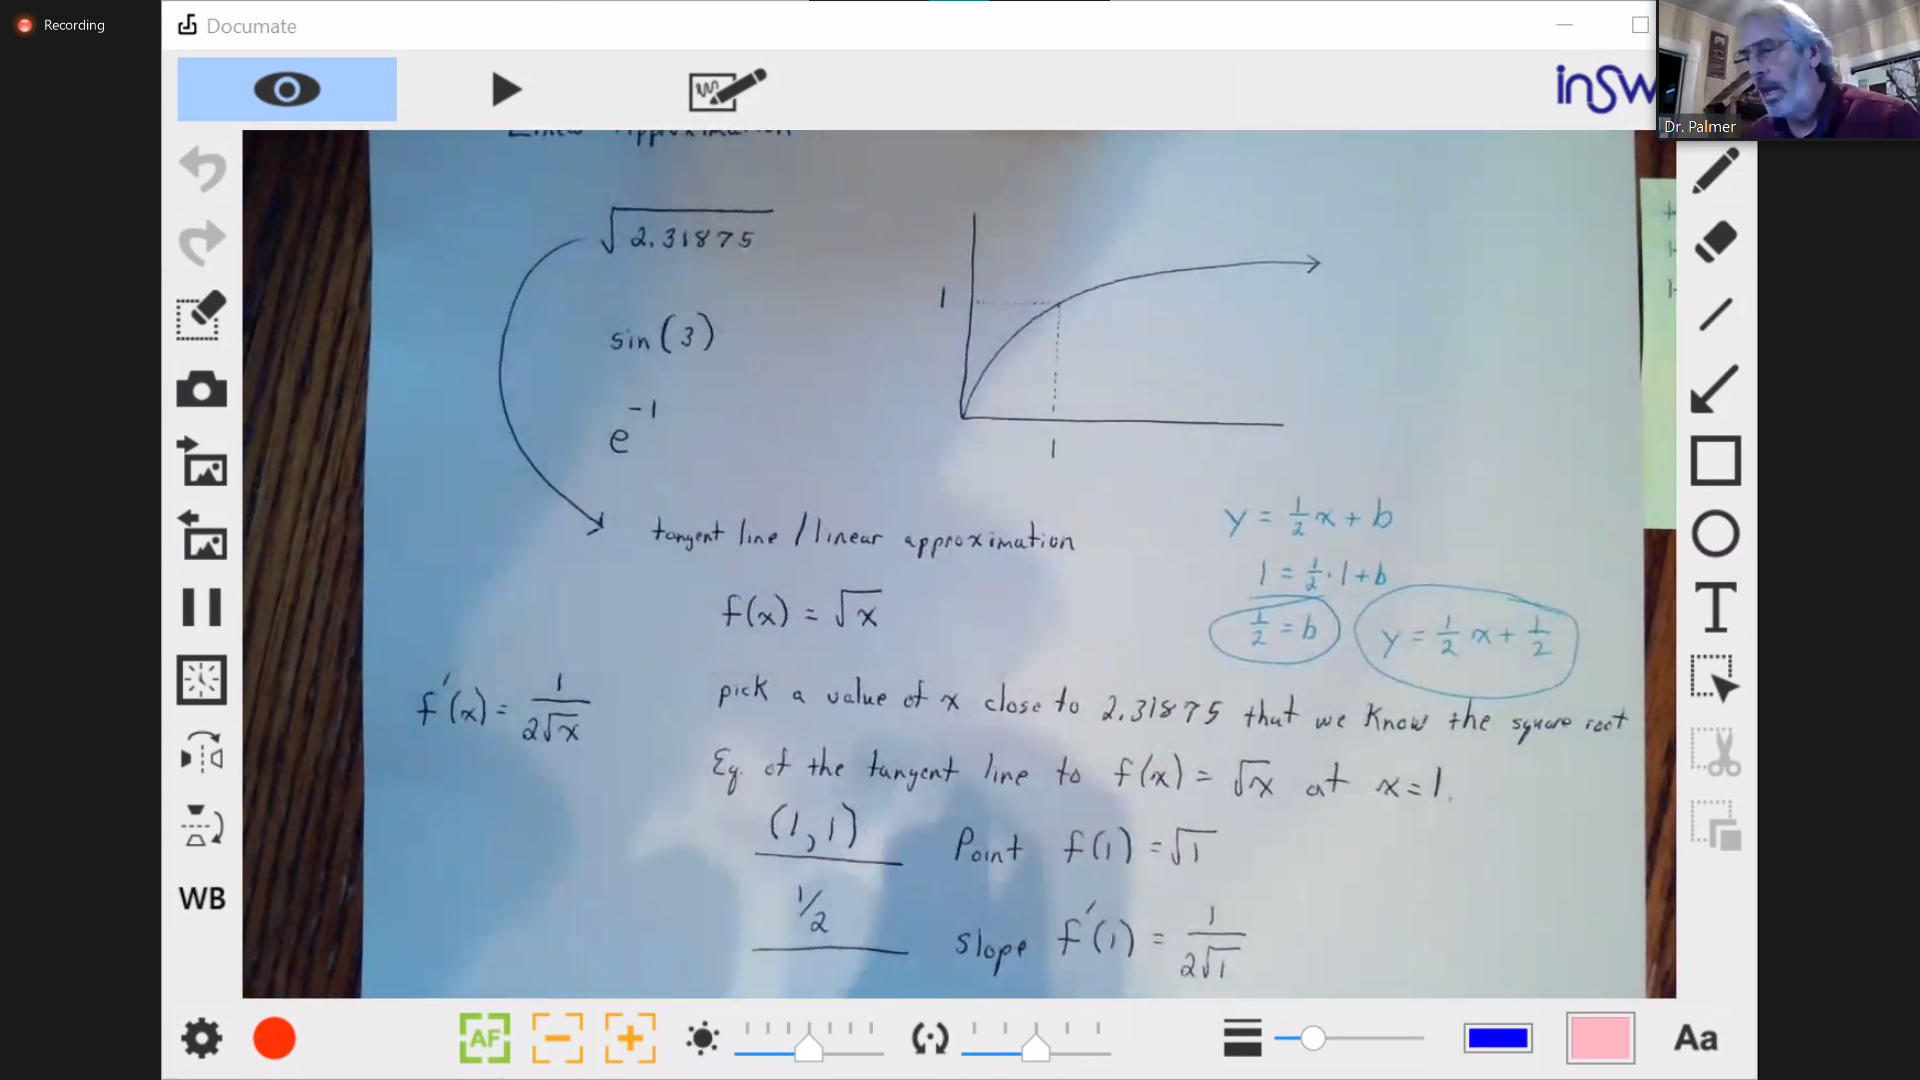 Recording
Documate
inSw
Dr. Palmer
Linear Approximation
√2.31875
sin(3)
e⁻¹
1
1
tangent line / linear approximation
f(x) = √x
y = 1/2 x + b
1 = 1/2 · 1 + b
1/2 = b
y = 1/2 x + 1/2
f'(x) = 1/(2√x)
pick a value of x close to 2.31875 that we know the square root
Eq. of the tangent line to f(x) = √x at x = 1.
(1, 1) Point f(1) = √1
1/2 slope f'(1) = 1/(2√1)
WB
AF
T
Aa